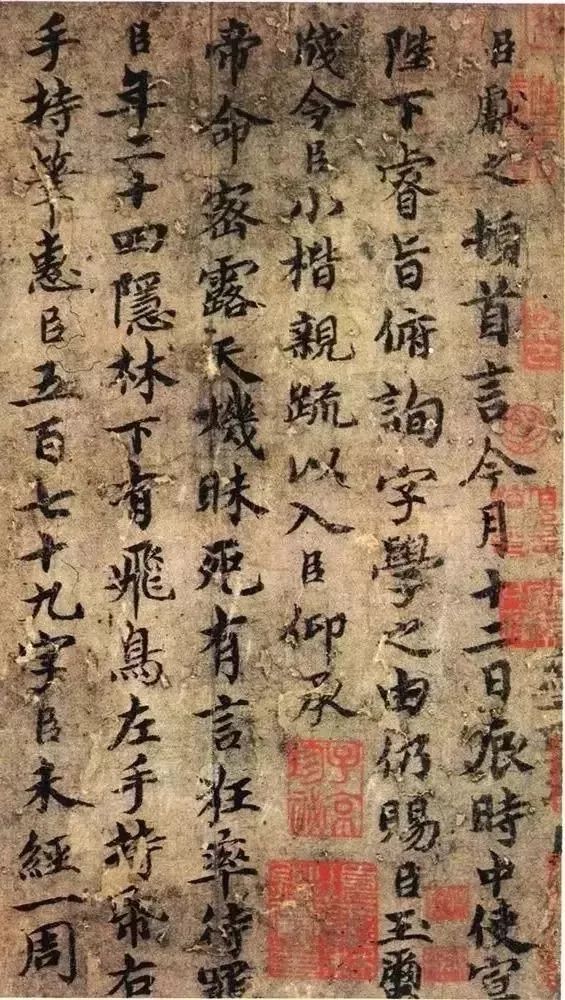 臣獻之頓首言今月十二日辰時中使宣
陛下睿旨俯詢字學之由仍賜臣玉璽
牋今臣小楷親疏以入臣仰承
帝命密露天機昧死有言狂率待罪
臣年二十四隱林下有飛鳥左手持帋右
手持筆惠臣五百七十九字臣未經一周